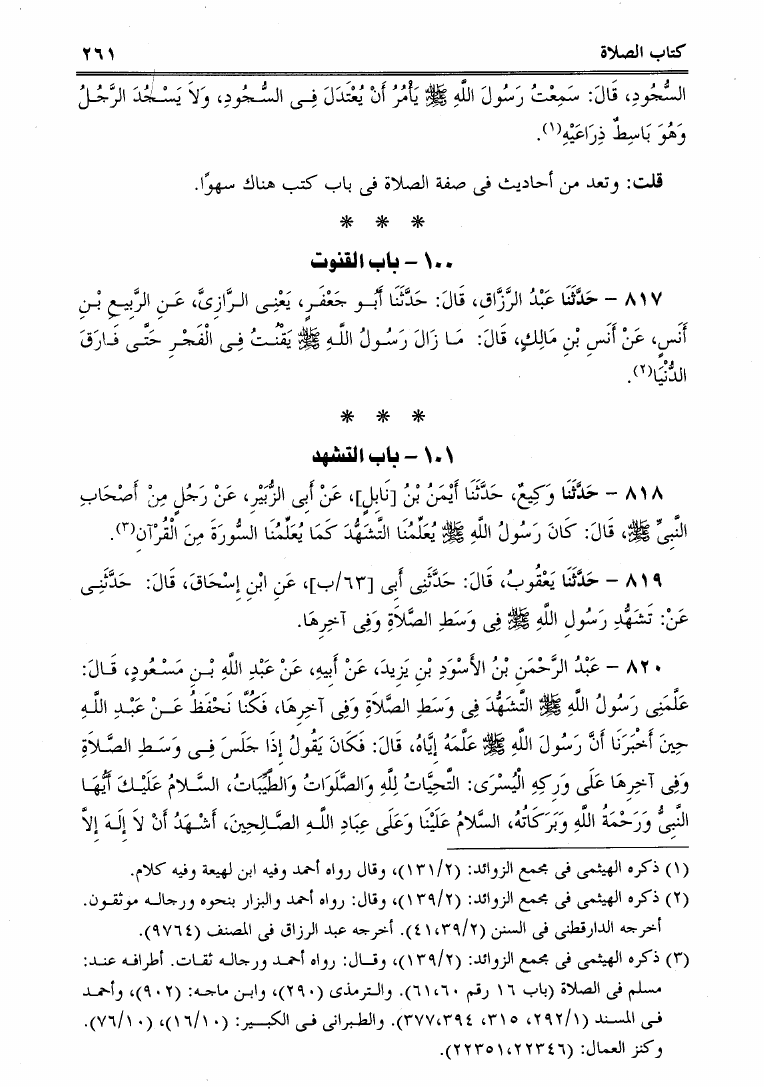 كتاب الصلاة ٢٦١
السُّجُودِ، قَالَ: سَمِعْتُ رَسُولَ اللَّهِ ﷺ يَأْمُرُ أَنْ يُعْتَدَلَ فِى السُّجُودِ، وَلاَ يَسْجُدَ الرَّجُلُ
وَهُوَ بَاسِطٌ ذِرَاعَيْهِ(١).
قلت: وتعد من أحاديث فى صفة الصلاة فى باب كتب هناك سهوًا.
* * *
١٠٠ – باب القنوت
٨١٧ – حَدَّثَنَا عَبْدُ الرَّزَّاقِ، قَالَ: حَدَّثَنَا أَبُو جَعْفَرٍ، يَعْنِى الرَّازِىَّ، عَنِ الرَّبِيعِ بْنِ
أَنَسٍ، عَنْ أَنَسِ بْنِ مَالِكٍ، قَالَ: مَا زَالَ رَسُولُ اللَّهِ ﷺ يَقْنُتُ فِى الْفَجْرِ حَتَّى فَارَقَ
الدُّنْيَا(٢).
* * *
١٠١ – باب التشهد
٨١٨ – حَدَّثَنَا وَكِيعٌ، حَدَّثَنَا أَيْمَنُ بْنُ [نَابِلٍ]، عَنْ أَبِى الزُّبَيْرِ، عَنْ رَجُلٍ مِنْ أَصْحَابِ
النَّبِىِّ ﷺ، قَالَ: كَانَ رَسُولُ اللَّهِ ﷺ يُعَلِّمُنَا التَّشَهُّدَ كَمَا يُعَلِّمُنَا السُّورَةَ مِنَ الْقُرْآنِ(٣).
٨١٩ – حَدَّثَنَا يَعْقُوبُ، قَالَ: حَدَّثَنِى أَبِى [٦٣/ب]، عَنِ ابْنِ إِسْحَاقَ، قَالَ: حَدَّثَنِى
عَنْ: تَشَهُّدِ رَسُولِ اللَّهِ ﷺ فِى وَسَطِ الصَّلاَةِ وَفِى آخِرِهَا.
٨٢٠ – عَبْدُ الرَّحْمَنِ بْنُ الأَسْوَدِ بْنِ يَزِيدَ، عَنْ أَبِيهِ، عَنْ عَبْدِ اللَّهِ بْنِ مَسْعُودٍ، قَالَ:
عَلَّمَنِى رَسُولُ اللَّهِ ﷺ التَّشَهُّدَ فِى وَسَطِ الصَّلاَةِ وَفِى آخِرِهَا، فَكُنَّا نَحْفَظُ عَنْ عَبْدِ اللَّهِ
حِينَ أَخْبَرَنَا أَنَّ رَسُولَ اللَّهِ ﷺ عَلَّمَهُ إِيَّاهُ، قَالَ: فَكَانَ يَقُولُ إِذَا جَلَسَ فِى وَسَطِ الصَّلاَةِ
وَفِى آخِرِهَا عَلَى وَرِكِهِ الْيُسْرَى: التَّحِيَّاتُ لِلَّهِ وَالصَّلَوَاتُ وَالطَّيِّبَاتُ، السَّلاَمُ عَلَيْكَ أَيُّهَا
النَّبِىُّ وَرَحْمَةُ اللَّهِ وَبَرَكَاتُهُ، السَّلاَمُ عَلَيْنَا وَعَلَى عِبَادِ اللَّهِ الصَّالِحِينَ، أَشْهَدُ أَنْ لاَ إِلَهَ إِلاَّ
(١) ذكره الهيثمى فى مجمع الزوائد: (١٣١/٢)، وقال رواه أحمد وفيه ابن لهيعة وفيه كلام.
(٢) ذكره الهيثمى فى مجمع الزوائد: (١٣٩/٢)، وقال: رواه أحمد والبزار بنحوه ورجاله موثقون.
أخرجه الدارقطنى فى السنن (٤١،٣٩/٢). أخرجه عبد الرزاق فى المصنف (٩٧٦٤).
(٣) ذكره الهيثمى فى مجمع الزوائد: (١٣٩/٢)، وقال: رواه أحمد ورجاله ثقات. أطرافه عند:
مسلم فى الصلاة (باب ١٦ رقم ٦١،٦٠). والترمذى (٢٩٠)، وابن ماجه: (٩٠٢)، وأحمد
فى المسند (٢٩٢/١، ٣١٥، ٣٧٧،٣٩٤). والطبرانى فى الكبير: (١٦/١٠)، (٧٦/١٠).
وكنز العمال: (٢٢٣٥١،٢٢٣٤٦).